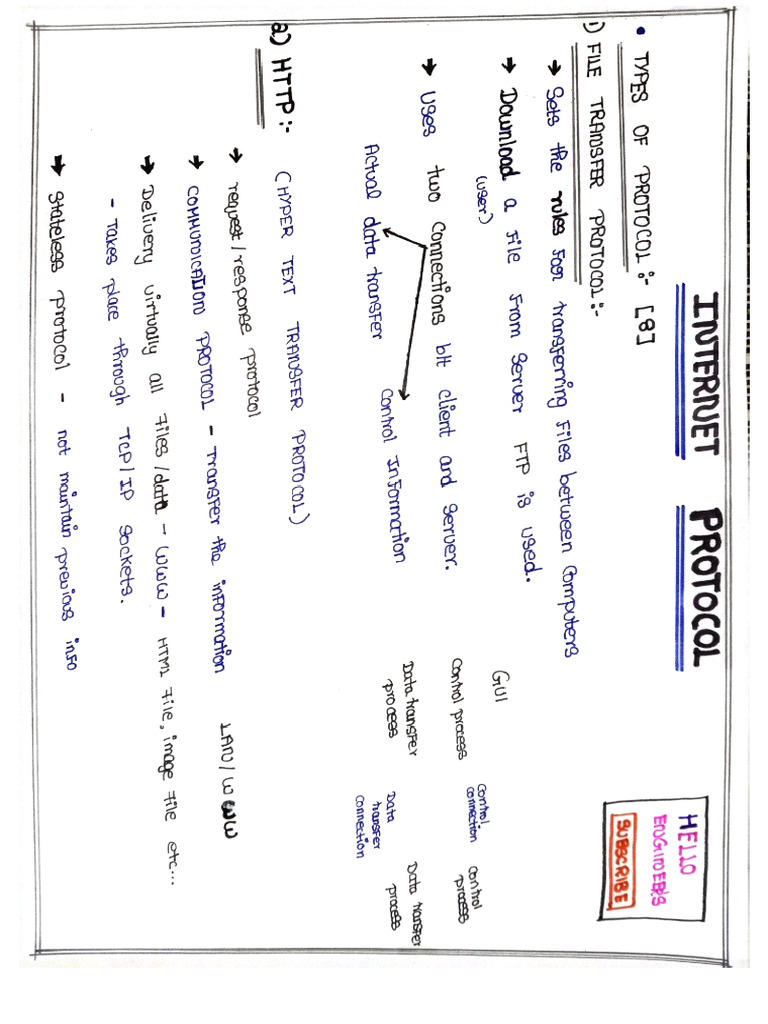 INTERNET PROTOCOL
HELLO
ENGINEERS
SUBSCRIBE
• TYPES OF PROTOCOL:- [8]
1) FILE TRANSFER PROTOCOL:-
→ Sets the rules for transferring files between Computers
→ Download a file from server FTP is used.
(user)
→ Uses two Connections b/t client and server.
Actual data transfer Control Information
GUI
Control process Control connection Control process
Data transfer process Data transfer connection Data transfer process
2) HTTP:- (HYPER TEXT TRANSFER PROTOCOL)
→ request/response protocol
→ COMMUNICATION PROTOCOL - Transfer the information LAN/WWW
→ Delivery virtually all files/data - WWW - HTML file, image file etc...
- Takes place through TCP/IP sockets.
→ Stateless protocol - not maintain previous info